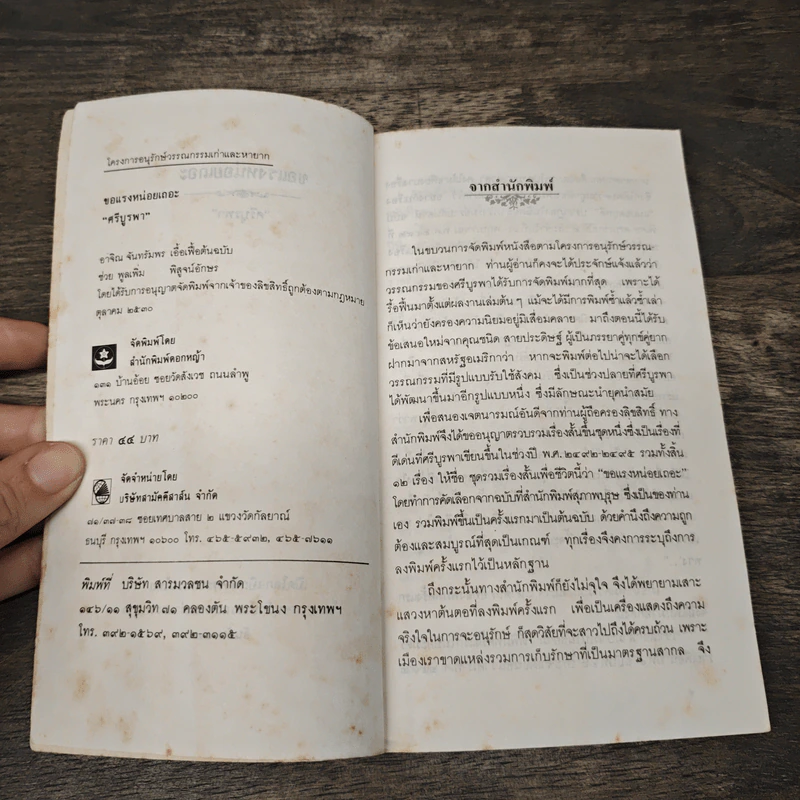 โครงการอนุรักษ์วรรณกรรมเก่าและหายาก
ขอแรงหน่อยเถอะ
“ศรีบูรพา”
อาจิณ จันทรัมพร เอื้อเฟื้อต้นฉบับ
ช่วย พูลเพิ่ม พิสูจน์อักษร
โดยได้รับการอนุญาตจัดพิมพ์จากเจ้าของลิขสิทธิ์ถูกต้องตามกฎหมาย
ตุลาคม ๒๕๓๐
จัดพิมพ์โดย
สำนักพิมพ์ดอกหญ้า
๑๓๑ บ้านอ้อย ซอยวัดสังเวช ถนนลำพู
พระนคร กรุงเทพฯ ๑๐๒๐๐
ราคา ๔๔ บาท
จัดจำหน่ายโดย
บริษัทสามัคคีสาส์น จำกัด
๗๑/๓๗-๓๘ ซอยเทศบาลสาย ๒ แขวงวัดกัลยาณ์
ธนบุรี กรุงเทพฯ ๑๐๖๐๐ โทร. ๔๖๕-๕๙๓๒, ๔๖๕-๗๖๑๑
พิมพ์ที่ บริษัท สารมวลชน จำกัด
๑๔๖/๑๑ สุขุมวิท ๗๑ คลองตัน พระโขนง กรุงเทพฯ
โทร. ๓๙๒-๑๕๖๙, ๓๙๒-๓๑๑๕
จากสำนักพิมพ์
ในขบวนการจัดพิมพ์หนังสือตามโครงการอนุรักษ์วรรณ-
กรรมเก่าและหายาก ท่านผู้อ่านก็คงจะได้ประจักษ์แจ้งแล้วว่า
วรรณกรรมของศรีบูรพาได้รับการจัดพิมพ์มากที่สุด เพราะได้
รื้อฟื้นมาตั้งแต่ผลงานเล่มต้น ๆ แม้จะได้มีการพิมพ์ซ้ำแล้วซ้ำเล่า
ก็เห็นว่ายังครองความนิยมอยู่มิเสื่อมคลาย มาถึงตอนนี้ได้รับ
ข้อเสนอใหม่จากคุณชนิด สายประดิษฐ์ ผู้เป็นภรรยาคู่ทุกข์คู่ยาก
ฝากมาจากสหรัฐอเมริกาว่า หากจะพิมพ์ต่อไปน่าจะได้เลือก
วรรณกรรมที่มีรูปแบบรับใช้สังคม ซึ่งเป็นช่วงปลายที่ศรีบูรพา
ได้พัฒนาขึ้นมาอีกรูปแบบหนึ่ง ซึ่งมีลักษณะนำยุคนำสมัย
เพื่อสนองเจตนารมณ์อันดีจากท่านผู้ถือครองลิขสิทธิ์ ทาง
สำนักพิมพ์จึงได้ขออนุญาตรวบรวมเรื่องสั้นขึ้นชุดหนึ่งซึ่งเป็นเรื่องที่
ดีเด่นที่ศรีบูรพาเขียนขึ้นในช่วงปี พ.ศ. ๒๔๙๒-๒๔๙๕ รวมทั้งสิ้น
๑๒ เรื่อง ให้ชื่อ ชุดรวมเรื่องสั้นเพื่อชีวิตนี้ว่า “ขอแรงหน่อยเถอะ”
โดยทำการคัดเลือกจากฉบับที่สำนักพิมพ์สุภาพบุรุษ ซึ่งเป็นของท่าน
เอง รวมพิมพ์ขึ้นเป็นครั้งแรกมาเป็นต้นฉบับ ด้วยคำนึงถึงความถูก
ต้องและสมบูรณ์ที่สุดเป็นเกณฑ์ ทุกเรื่องจึงคงการระบุถึงการ
ลงพิมพ์ครั้งแรกไว้เป็นหลักฐาน
ถึงกระนั้นทางสำนักพิมพ์ก็ยังไม่จุใจ จึงได้พยายามเสาะ
แสวงหาต้นตอที่ลงพิมพ์ครั้งแรก เพื่อเป็นเครื่องแสดงถึงความ
จริงใจในการจะอนุรักษ์ ก็สุดวิสัยที่จะสาวไปถึงได้ครบถ้วน เพราะ
เมืองเราขาดแหล่งรวมการเก็บรักษาที่เป็นมาตรฐานสากล จึง